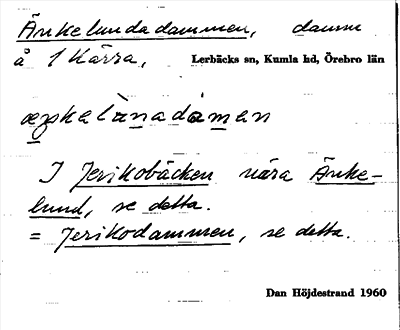 Änkelundadammen, damm
å 1 Kärra, Lerbäcks sn, Kumla hd, Örebro län
I Jerikobäcken nära Änke-
lund, se detta.
= Jerikodammen, se detta.
Dan Höjdestrand 1960